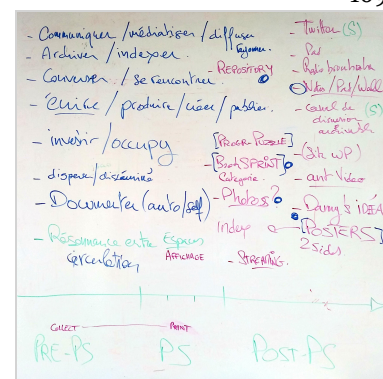 - Communiquer / médiatiser / diffuser
- Archiver / indexer.
- Converser / se rencontrer
- Écrire / produire / créer / publier.
- investir / occupy
- disperse / disséminé
- Documenter (auto/self)
- Résonnance entre Espaces
circulation
- REPOSITORY
[BookSPRINT]
- Photos?
Index
AFFICHAGE
- STREAMING.
- Twitter (S)
- Pad
- Notes / Pad / Wall
- canal de
(S)
- (Site WP)
- Danny's IDEA
[POSTERS]
2 sides
COLLECT
PRINT
PRE-PS
PS
POST-PS